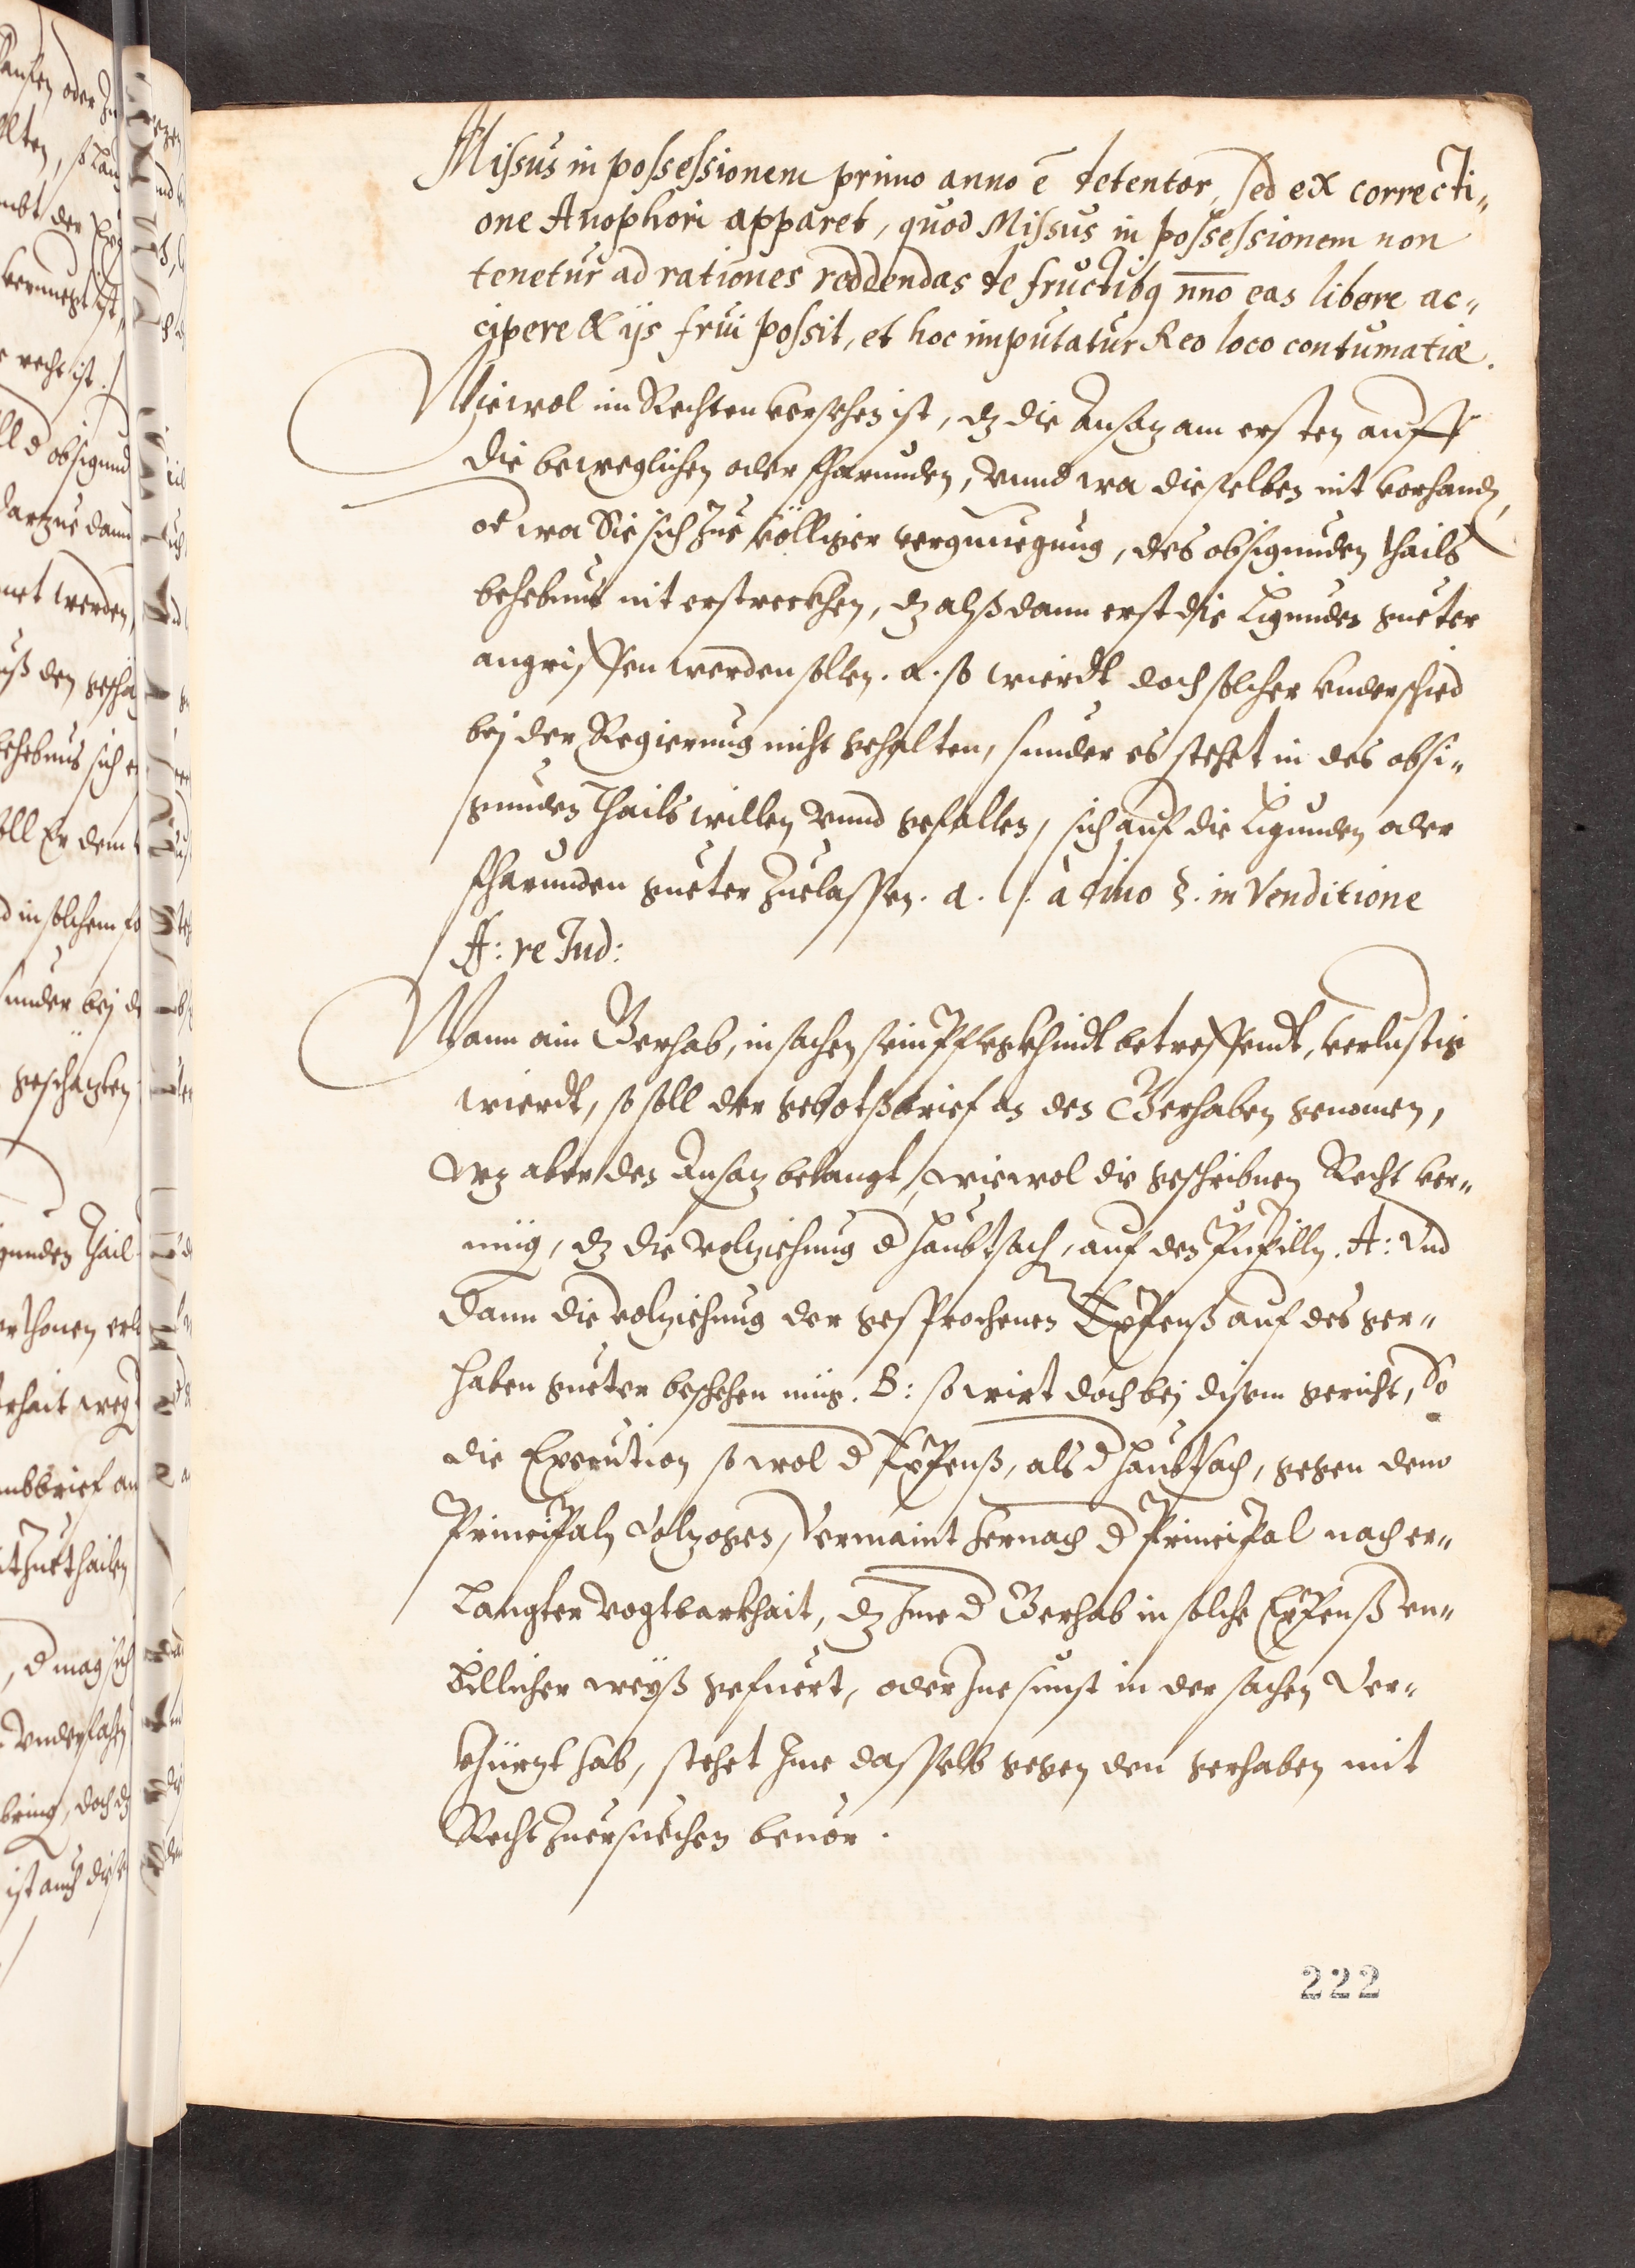 Missus in possessionem primo anno ē detentor, sed ex correcti-
one Auophori apparet, quod Missus in possessionem non
tenetur ad rationes reddendas de fructibq nnno eas libere ac-
cipere & ijs frui possit, et hoc imputatur Reo loco contumatiæ.
Wiewol im Rechten versehen ist, dz die Ansaz am ersten auff
die beweglichen oder fharunden, vnnd wa dieselben nit vorhandn,
od wa Sie sich zue völliger vergnuegung, des obsigunden thails
behebnus nit erstreckhen, dz alßdann erst die Ligunden gueter
angriffen werden sollen. a. so wierdt doch solcher vnderschied
bej der Regierung nicht gehalten, sunder es stehet in des obsi-
gunden Thails willen vnnd gefallen, sich auf die Ligunden oder
fharunden gueter zuelassen. a. l. à divo §. in Venditione
ff: re Jud:
Wann ain Gerhab, in sachen sein Pflegkhindt betreffendt, verlustig
wierdt, so soll der gebotßbrief an den Gerhaben genomen,
wz aber den Ansaz belangt, wiewol die geschribnen Recht ver-
müg, dz die volziehung d haubtsach, auf den Pupilln. A: Vnd
dann die volziehung der gesprochenen Expenß auf des ger-
haben gueter beschehen müg. B: so wirt doch bej disem gericht, So
die Execution so wol d Expenß, als d haubtsach, gegen dem
Principaln Volzogen, Vermaint hernach d Principal nach er-
langter vogtbarkhait, dz Ime d Gerhab in solche Expenß vn-
billicher weyß gefuert, oder Ine sunst in der sachen Ver-
khürzt hab, stehet Ime dasselb gegen den gerhaben mit
Recht zuersuechen beuor.
222